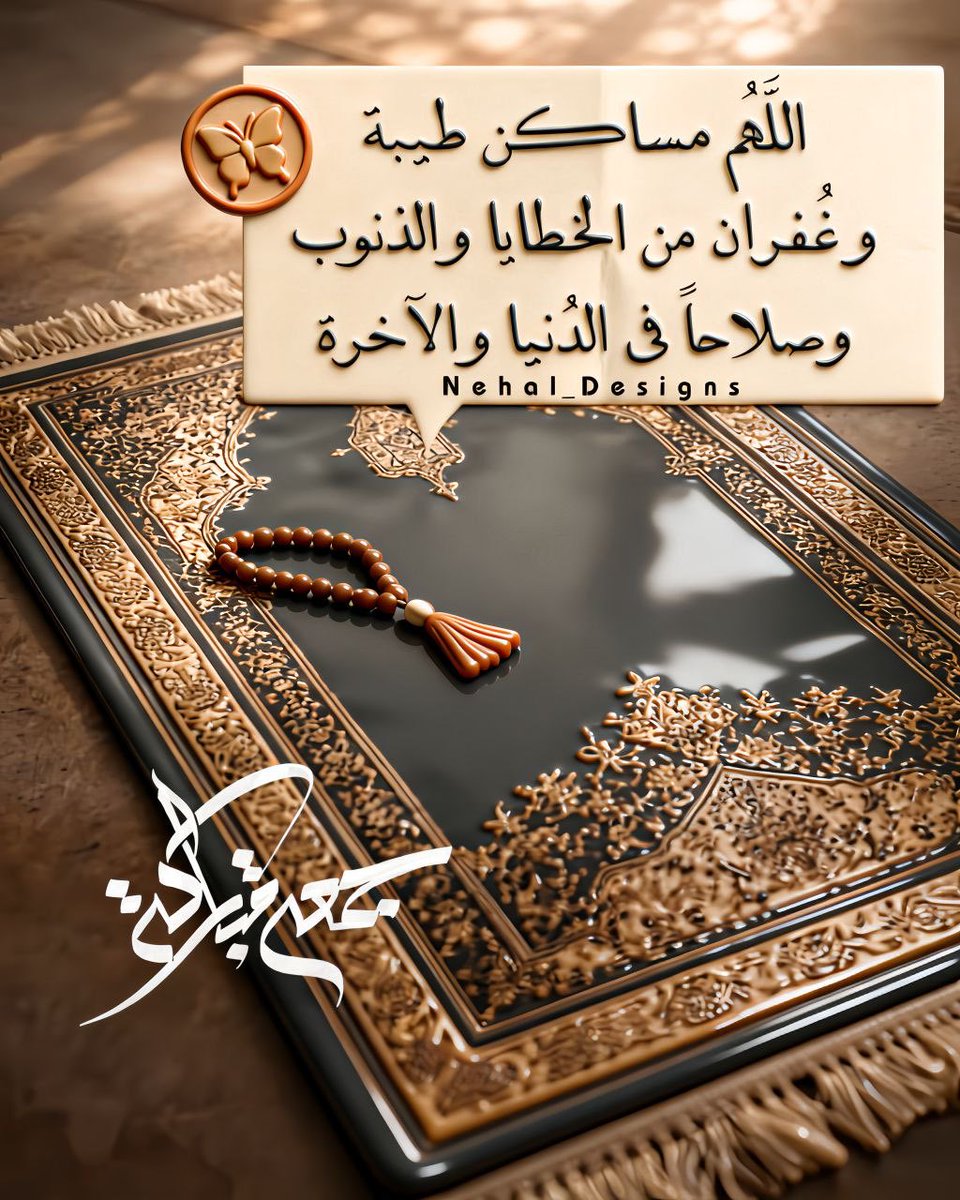 اللَّهُم مساكن طيبة
وغُفران من الخطايا والذنوب
وصلاحاً فى الدُنيا والآخرة
Nehal_Designs
جمعة مباركة